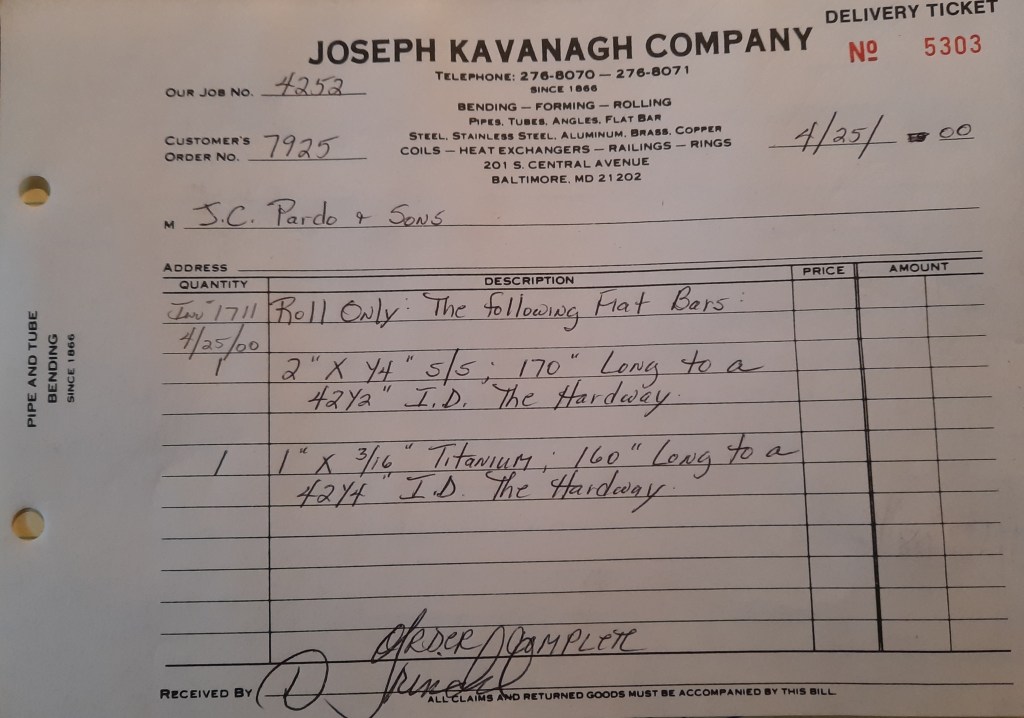 DELIVERY TICKET
JOSEPH KAVANAGH COMPANY
Nº 5303
TELEPHONE: 276-8070 — 276-8071
SINCE 1866
OUR JOB NO. 4252
BENDING — FORMING — ROLLING
PIPES, TUBES, ANGLES, FLAT BAR
STEEL, STAINLESS STEEL, ALUMINUM, BRASS, COPPER
CUSTOMER'S
ORDER NO. 7925
COILS — HEAT EXCHANGERS — RAILINGS — RINGS
4/25/ 00
201 S. CENTRAL AVENUE
BALTIMORE, MD 21202
M J.C. Pardo & Sons
ADDRESS
QUANTITY DESCRIPTION PRICE AMOUNT
Inv 1711 Roll Only: The following Flat Bars:
4/25/00
1 2" X 1/4" S/S; 170" Long to a
42 1/2" I.D. The Hardway.
1 1" X 3/16" Titanium; 160" Long to a
42 1/4" I.D. The Hardway.
ORDER COMPLETE
RECEIVED BY D
ALL CLAIMS AND RETURNED GOODS MUST BE ACCOMPANIED BY THIS BILL
PIPE AND TUBE
BENDING
SINCE 1866